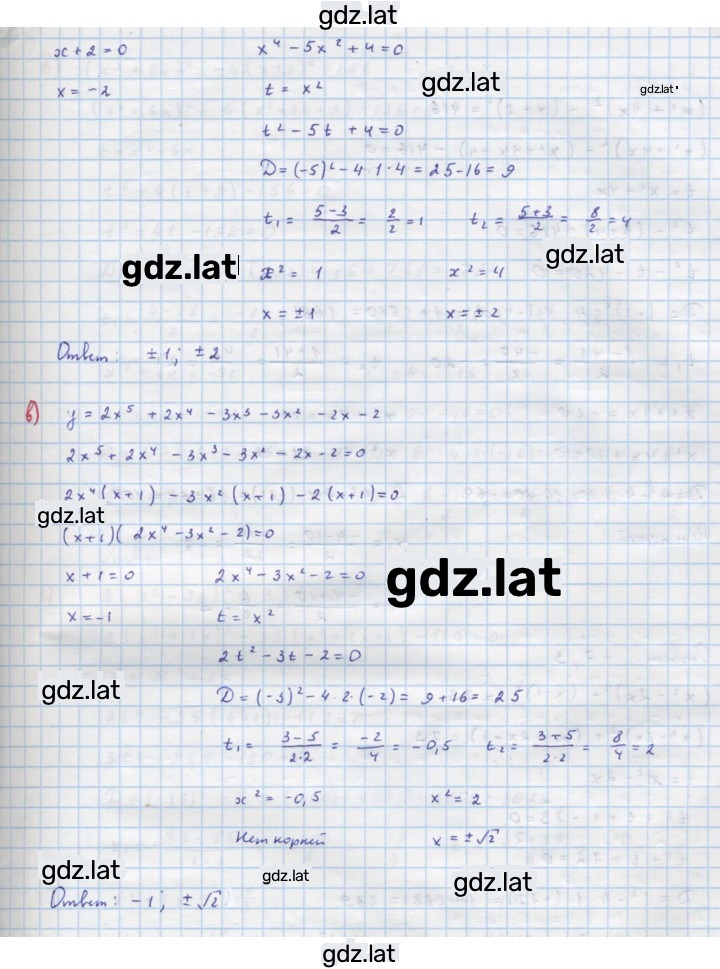 gdz.lat
x + 2 = 0    x⁴ - 5x² + 4 = 0
x = -2    t = x²
gdz.lat    gdz.lat
t² - 5t + 4 = 0
D = (-5)² - 4·1·4 = 25 - 16 = 9
t₁ = (5-3)/2 = 2/2 = 1    t₂ = (5+3)/2 = 8/2 = 4
gdz.lat    gdz.lat
x² = 1    x² = 4
x = ±1    x = ±2
Ответ: ±1; ±2
в) y = 2x⁵ + 2x⁴ - 3x³ - 3x² - 2x - 2
2x⁵ + 2x⁴ - 3x³ - 3x² - 2x - 2 = 0
2x⁴(x+1) - 3x²(x+1) - 2(x+1) = 0
gdz.lat
(x+1)(2x⁴ - 3x² - 2) = 0
x + 1 = 0    2x⁴ - 3x² - 2 = 0
gdz.lat
x = -1    t = x²
2t² - 3t - 2 = 0
gdz.lat
D = (-3)² - 4·2·(-2) = 9 + 16 = 25
t₁ = (3-5)/(2·2) = -2/4 = -0,5    t₂ = (3+5)/(2·2) = 8/4 = 2
x² = -0,5    x² = 2
Нет корней    x = ±√2
gdz.lat    gdz.lat    gdz.lat
Ответ: -1; ±√2
gdz.lat